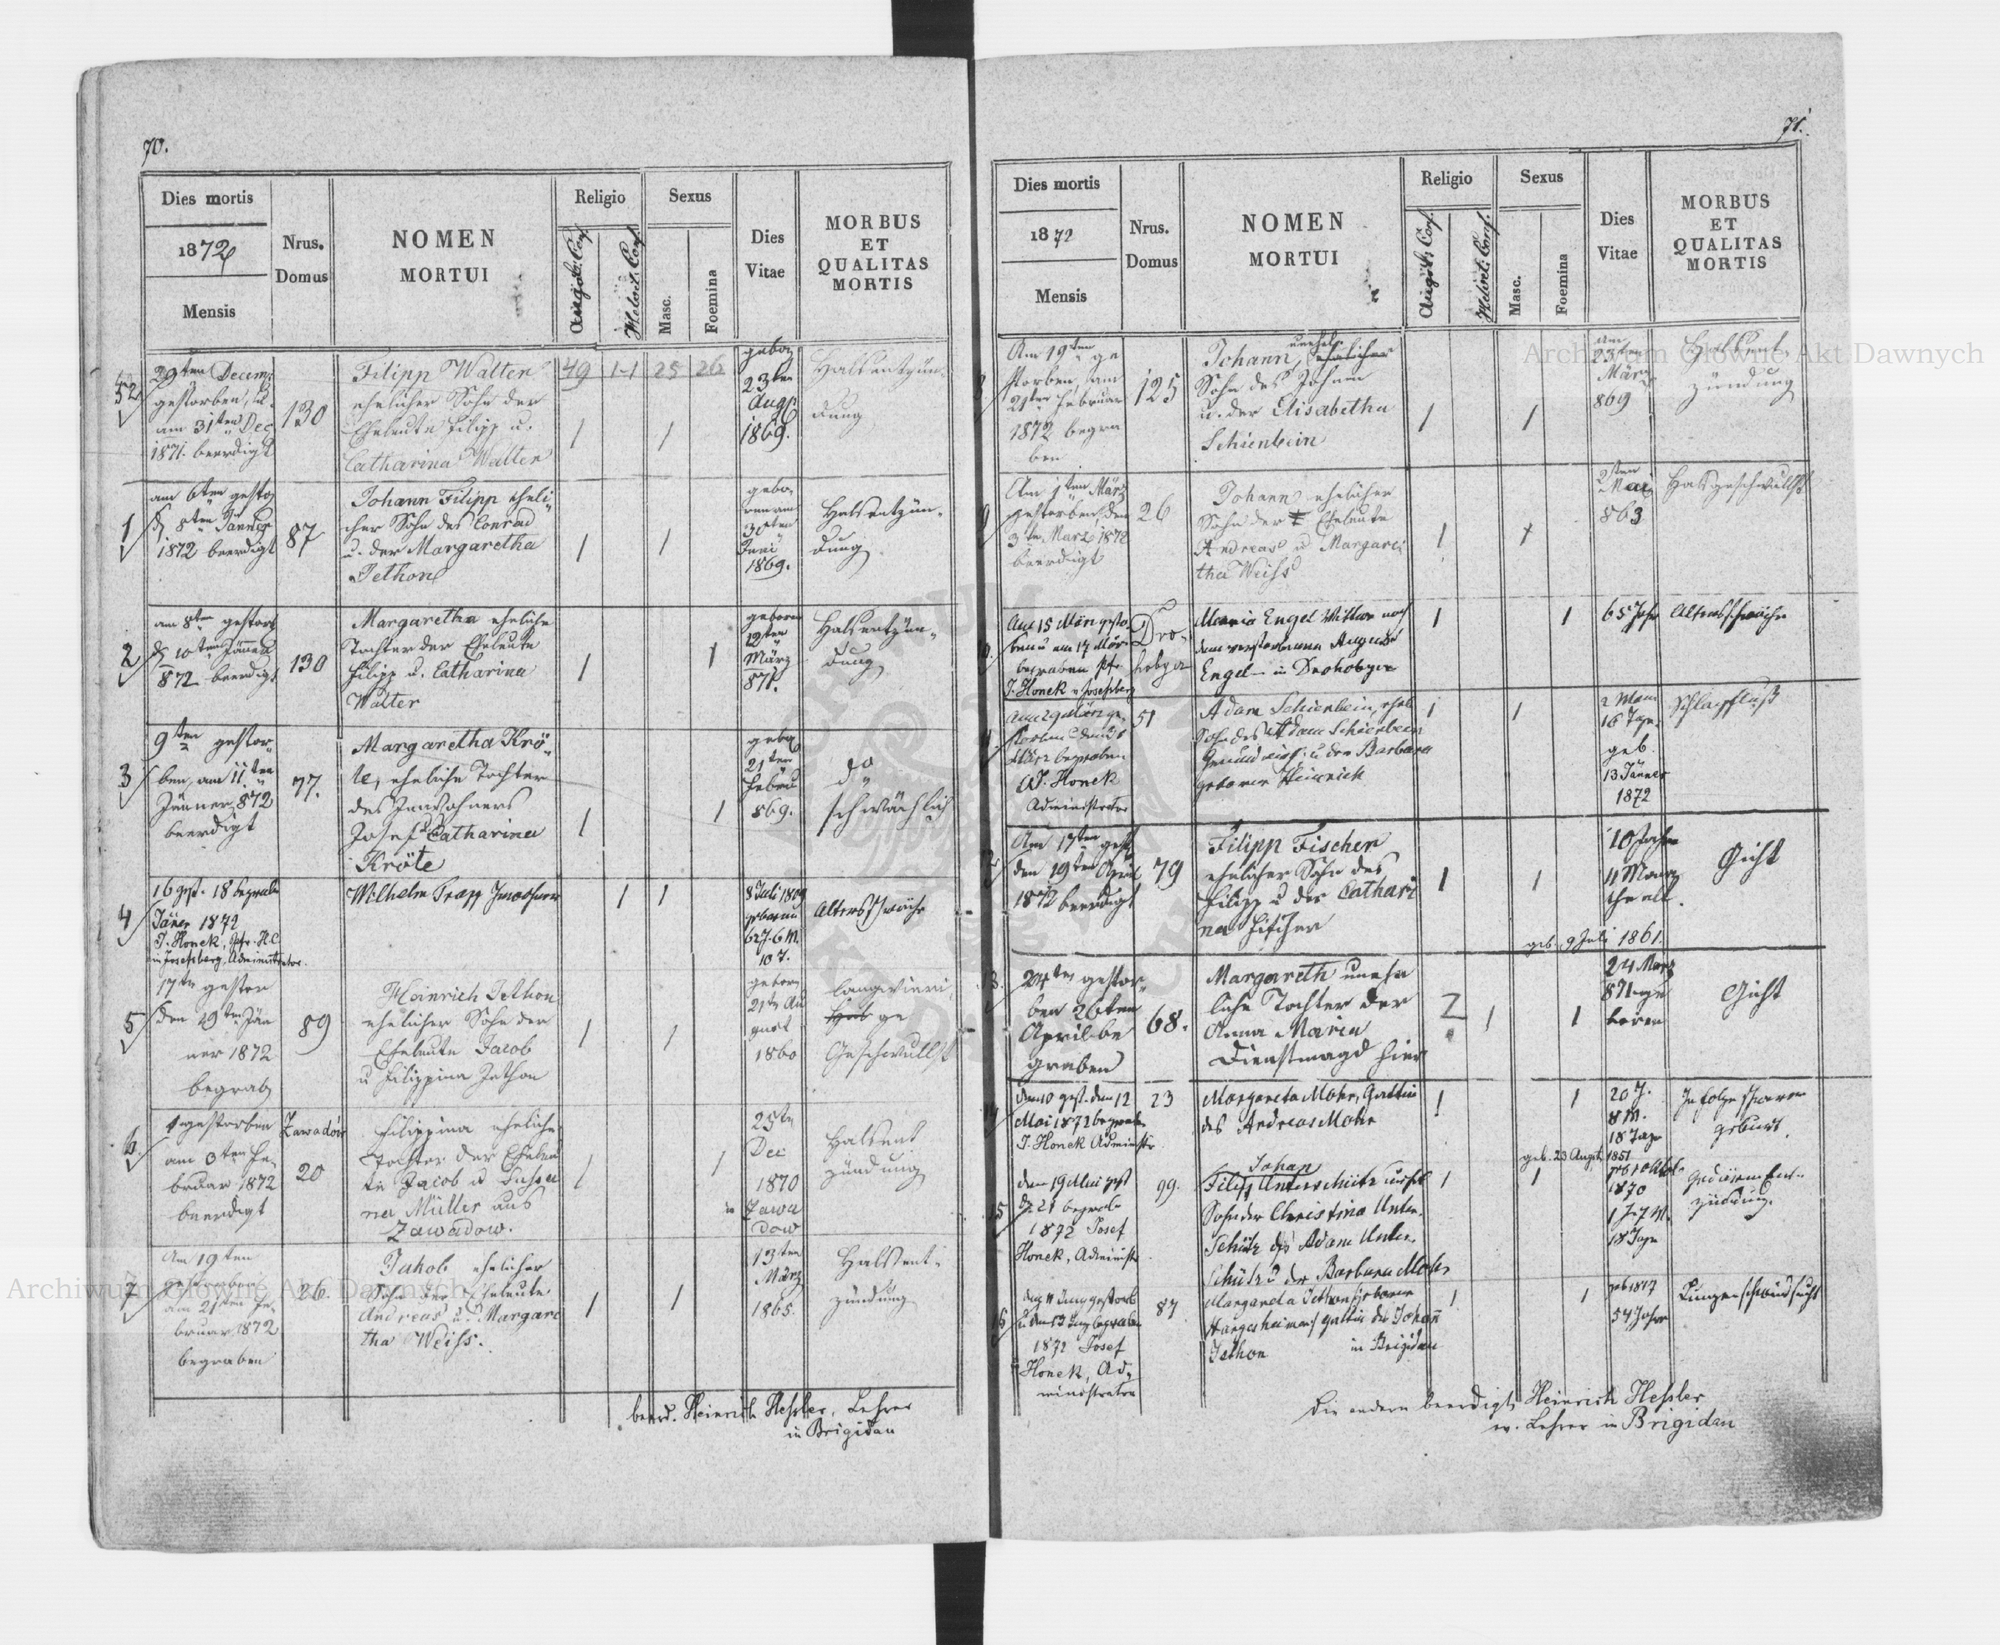 70.
Dies mortis
1872
Mensis
Nrus.
Domus
NOMEN
MORTUI
Religio
Augsb: Conf.
Helvet: Conf.
Sexus
Masc.
Foemina
Dies
Vitae
MORBUS
ET
QUALITAS
MORTIS
52
29ten Decemb
gestorben, u.
am 31ten Dec
1871. beerdigt
130
Filipp Walter
ehelicher Sohn der
Eheleute Filipp u.
Catharina Walter
49 1-1 25 26
1
1
gebor
23ten
Aug
1869.
Halsentzün-
dung
1
am 6ten gestor
d 8ten Jänner
1872 beerdigt
87
Johann Filipp eheli
cher Sohn des Conrad
u. der Margaretha
Jethon
1
1
gebo-
ren am
30ten
Juni
1869.
Halsentzün-
dung
2
am 8ten gestorb
d 10ten Jänner
872 beerdigt
130
Margaretha eheliche
Tochter der Eheleute
Filipp u. Catharina
Walter
1
1
geboren
19ten
März
871.
Halsentzün-
dung
3
9ten gestor-
ben, am 11ten
Jänner 872
beerdigt
77.
Margaretha Krö
te, eheliche Tochter
des Inwohners
Josef u Catharina
Kröte
1
1
gebo
21ten
Febru
869.
do
schwächlich
4
16 gest. 18 begrab
Jäner 1872
J. Honek, Pfr. H.C.
in Josefsberg, Administrator.
Wilhelm Trapp Inwohner
1
1
8 Juli 1809
geboren
62 J. 6 M.
10 T.
Altersschwäche
5
17te gestor
den 19ten Jän
ner 1872
begrab
89
Heinrich Jethon
ehelicher Sohn der
Eheleute Jacob
u Filippina Jethon
1
1
gebor
21te Au
gust
1860
langwieri
ge
Geschwulst
6.
gestorben
am 3ten Fe-
bruar 1872
beerdigt
Zawadów
20
Filippina eheliche
Tochter der Eheleu
te Jacob u Susan
na Müller aus
Zawadow.
1
1
25te
Dec
1870
in Zawa
dow
Halsent
zündung
7
Am 19ten
gestorben
am 21ten Fe-
bruar 1872
begraben
26.
Jakob ehelicher
Sohn der Eheleute
Andreas u. Margare
tha Weiss.
1
1
13ten
März
1865.
Halsent-
zündung
beerd. Heinrich Hessler, Lehrer
in Brigidau
71.
Dies mortis
1872
Mensis
Nrus.
Domus
NOMEN
MORTUI
Religio
Augsb: Conf.
Helvet: Conf.
Sexus
Masc.
Foemina
Dies
Vitae
MORBUS
ET
QUALITAS
MORTIS
8
Am 19ten ge
storben, am
21ten Februar
1872 begra
ben
125
unehel
Johann, ehelicher
Sohn des Johann
u. der Elisabetha
Schienbein
1
1
am
23ten
März
869
Halsent
zündung
9
Am 1ten März
gestorben, den
3ten März 1872
beerdigt
26
Johann ehelicher
Sohn der Eheleute
Andreas u Margare
tha Weiss
1
1
2ten
Mai
863
Halsgeschwulst
10
Am 15 März gestor
ben u am 17 März
begraben Pfr
J. Honek Josefsberg
Dro-
hobycz
Maria Engel Wittwe nach
dem verstorbenen August
Engel in Drohobycz
1
1
65 Jahr
Altersschwäche
11
storben
März begraben
J. Honek
Administrator
51
Adam Schienbein, ehel
Sohn des Adam Schienbein
u der Barbara
geborene Heinrich
1
1
2 Mon
16 Tage
geb.
13 Jänner
1872
Schlagfluß
12
Am 17ten gest
den 19ten April
1872 beerdigt
79
Filipp Fischer
ehelicher Sohn des
Filipp u der Cathari
na Fischer
1
1
10 Jahre
Mona
the alt.
geb. 9 Juli 1861.
Gicht
13.
24ten gestor-
ben 26ten
April be
graben
68.
Margareth unehe
liche Tochter der
Anna Maria
Dienstmagd hier
1
1
24 März
871 ge
boren
Gicht
14
den 10 gest. den 12
Mai 1872 begraben
J. Honek Administr
23
Margareta Mohr, Gattin
des Andreas Mohr
1
1
20 J.
8 M.
18 Tage
geb. 23 August 1851
In Folge schwerer
Geburt.
15
den 19 Mai gest
d. 21 begrab
1872 Josef
Honek, Administr
99.
Johan
Filipp Unterschütz unehel
Sohn der Christina Unter-
schütz des Adam Unter-
schütz u der Barbara Mohr
1
1
1870
1 J. 7 M.
18 Tage
Gedärment-
zündung.
16
den 11 Juny gestorb
u den 13 Juny begraben
1872 Josef
Honek, Ad-
ministrator
87
Margareta Jethon geborene
Hargesheimer Gattin des Johann
Jethon in Brigidau
1
1
geb 1817
54 Jahre
Lungenschwindsucht
Die andern beerdigt Heinrich Hessler
ev. Lehrer in Brigidau
Archiwum Główne Akt Dawnych
Archiwum Główne Akt Dawnych